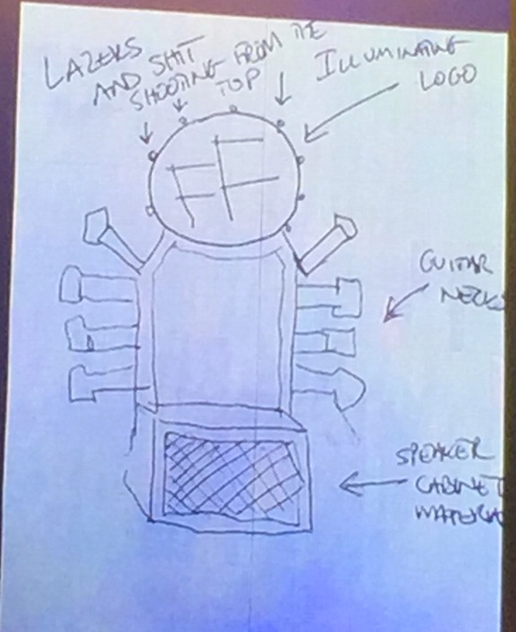 LAZERS
AND SHIT
SHOOTING FROM THE
TOP
ILLUMINATING
LOGO
FF
GUITAR
NECKS
SPEAKER
CABINET
MATERIA